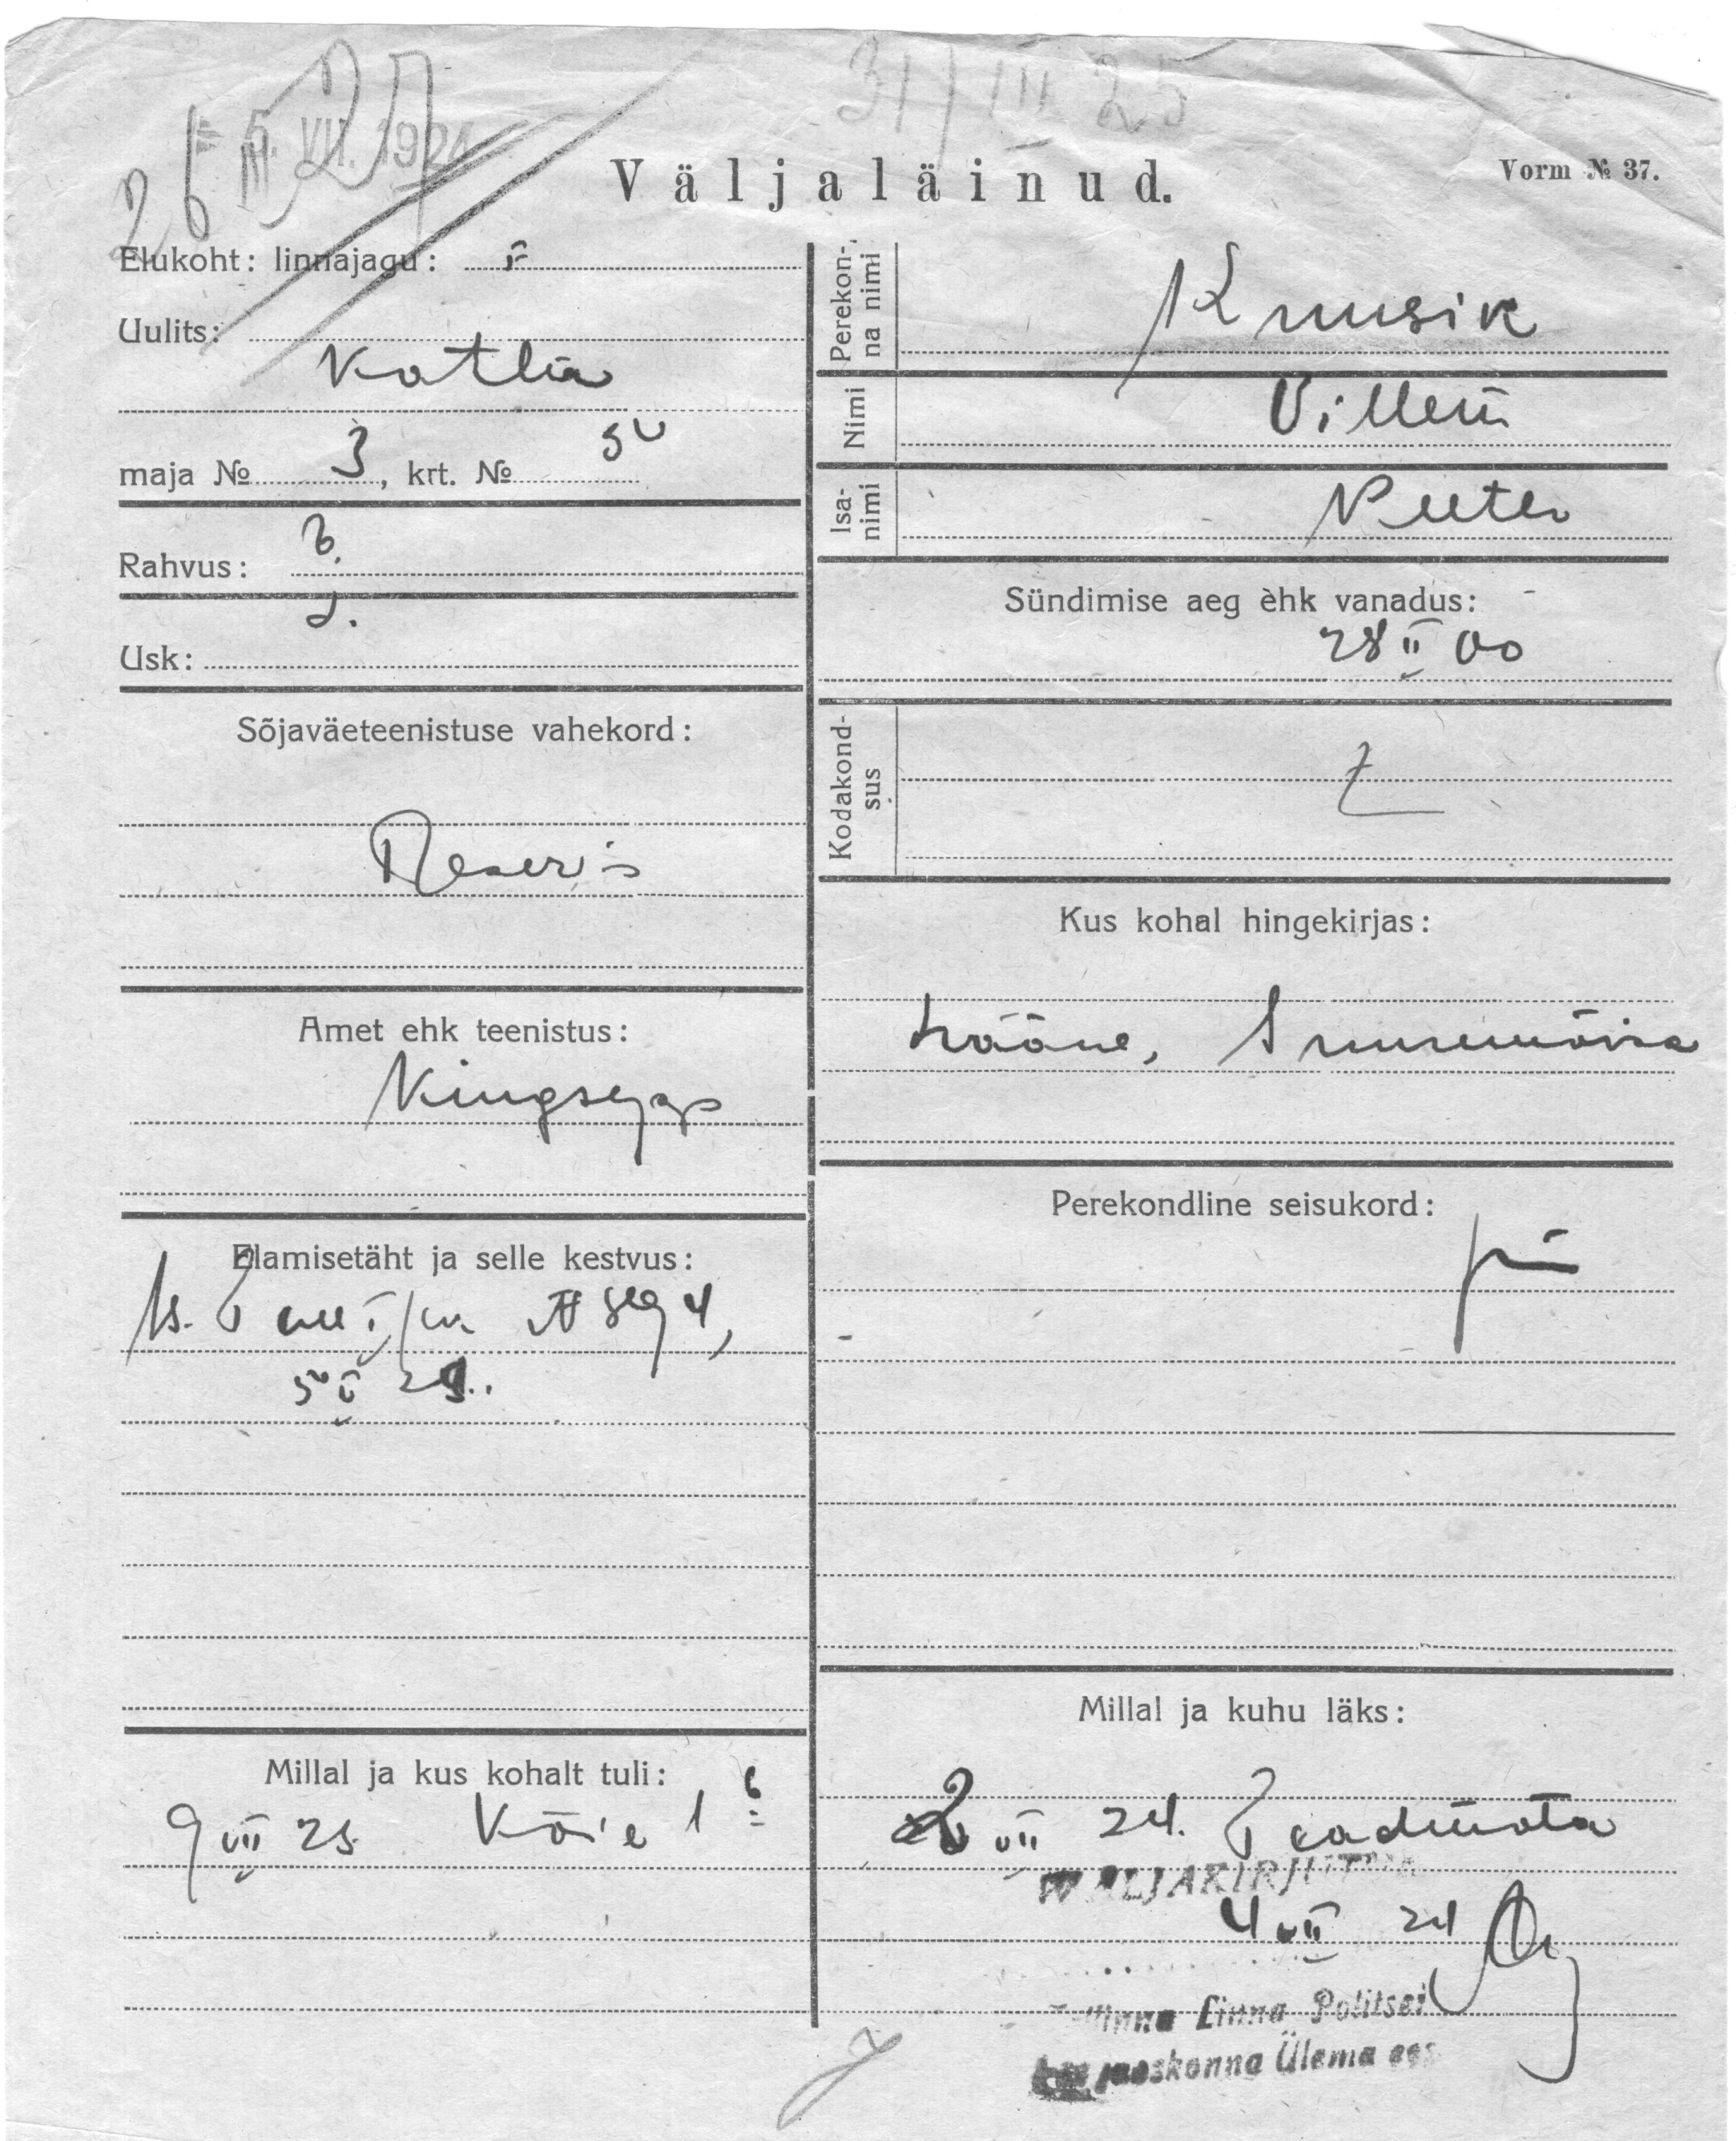 31/III 25
26 III 27
5. VII. 1924
Väljaläinud.
Vorm № 37.
Elukoht: linnajagu:
Uulits:
Katla
maja № 3, krt. №
Rahvus:
Usk:
Sõjaväeteenistuse vahekord:
Reservis
Amet ehk teenistus:
Kingsepp
Elamisetäht ja selle kestvus:
Millal ja kus kohalt tuli:
9 VII 23 Köie 1
Perekon-
na nimi
Kruusik
Nimi
Villem
Isa-
nimi
Peeter
Sündimise aeg ehk vanadus:
28 II 00
Kodakond-
sus
Kus kohal hingekirjas:
Lääne, Suuremõisa
Perekondline seisukord:
Millal ja kuhu läks:
2 VII 24. Teadmata
WALJAKIRJUTATUD
4 VII 24
Tallinna Linna Politsei
jaoskonna Ülema eest